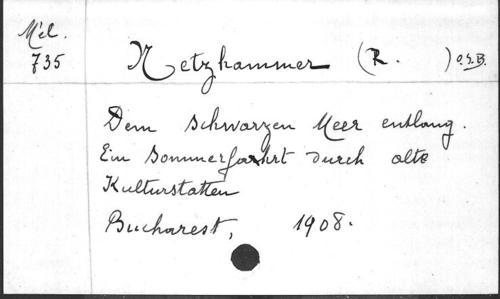 Mél.
735
Netzhammer (R. ) O.S.B.
Dem schwarzen Meer entlang.
Ein Sommerfahrt durch alte
Kulturstatten
Bucharest, 1908.